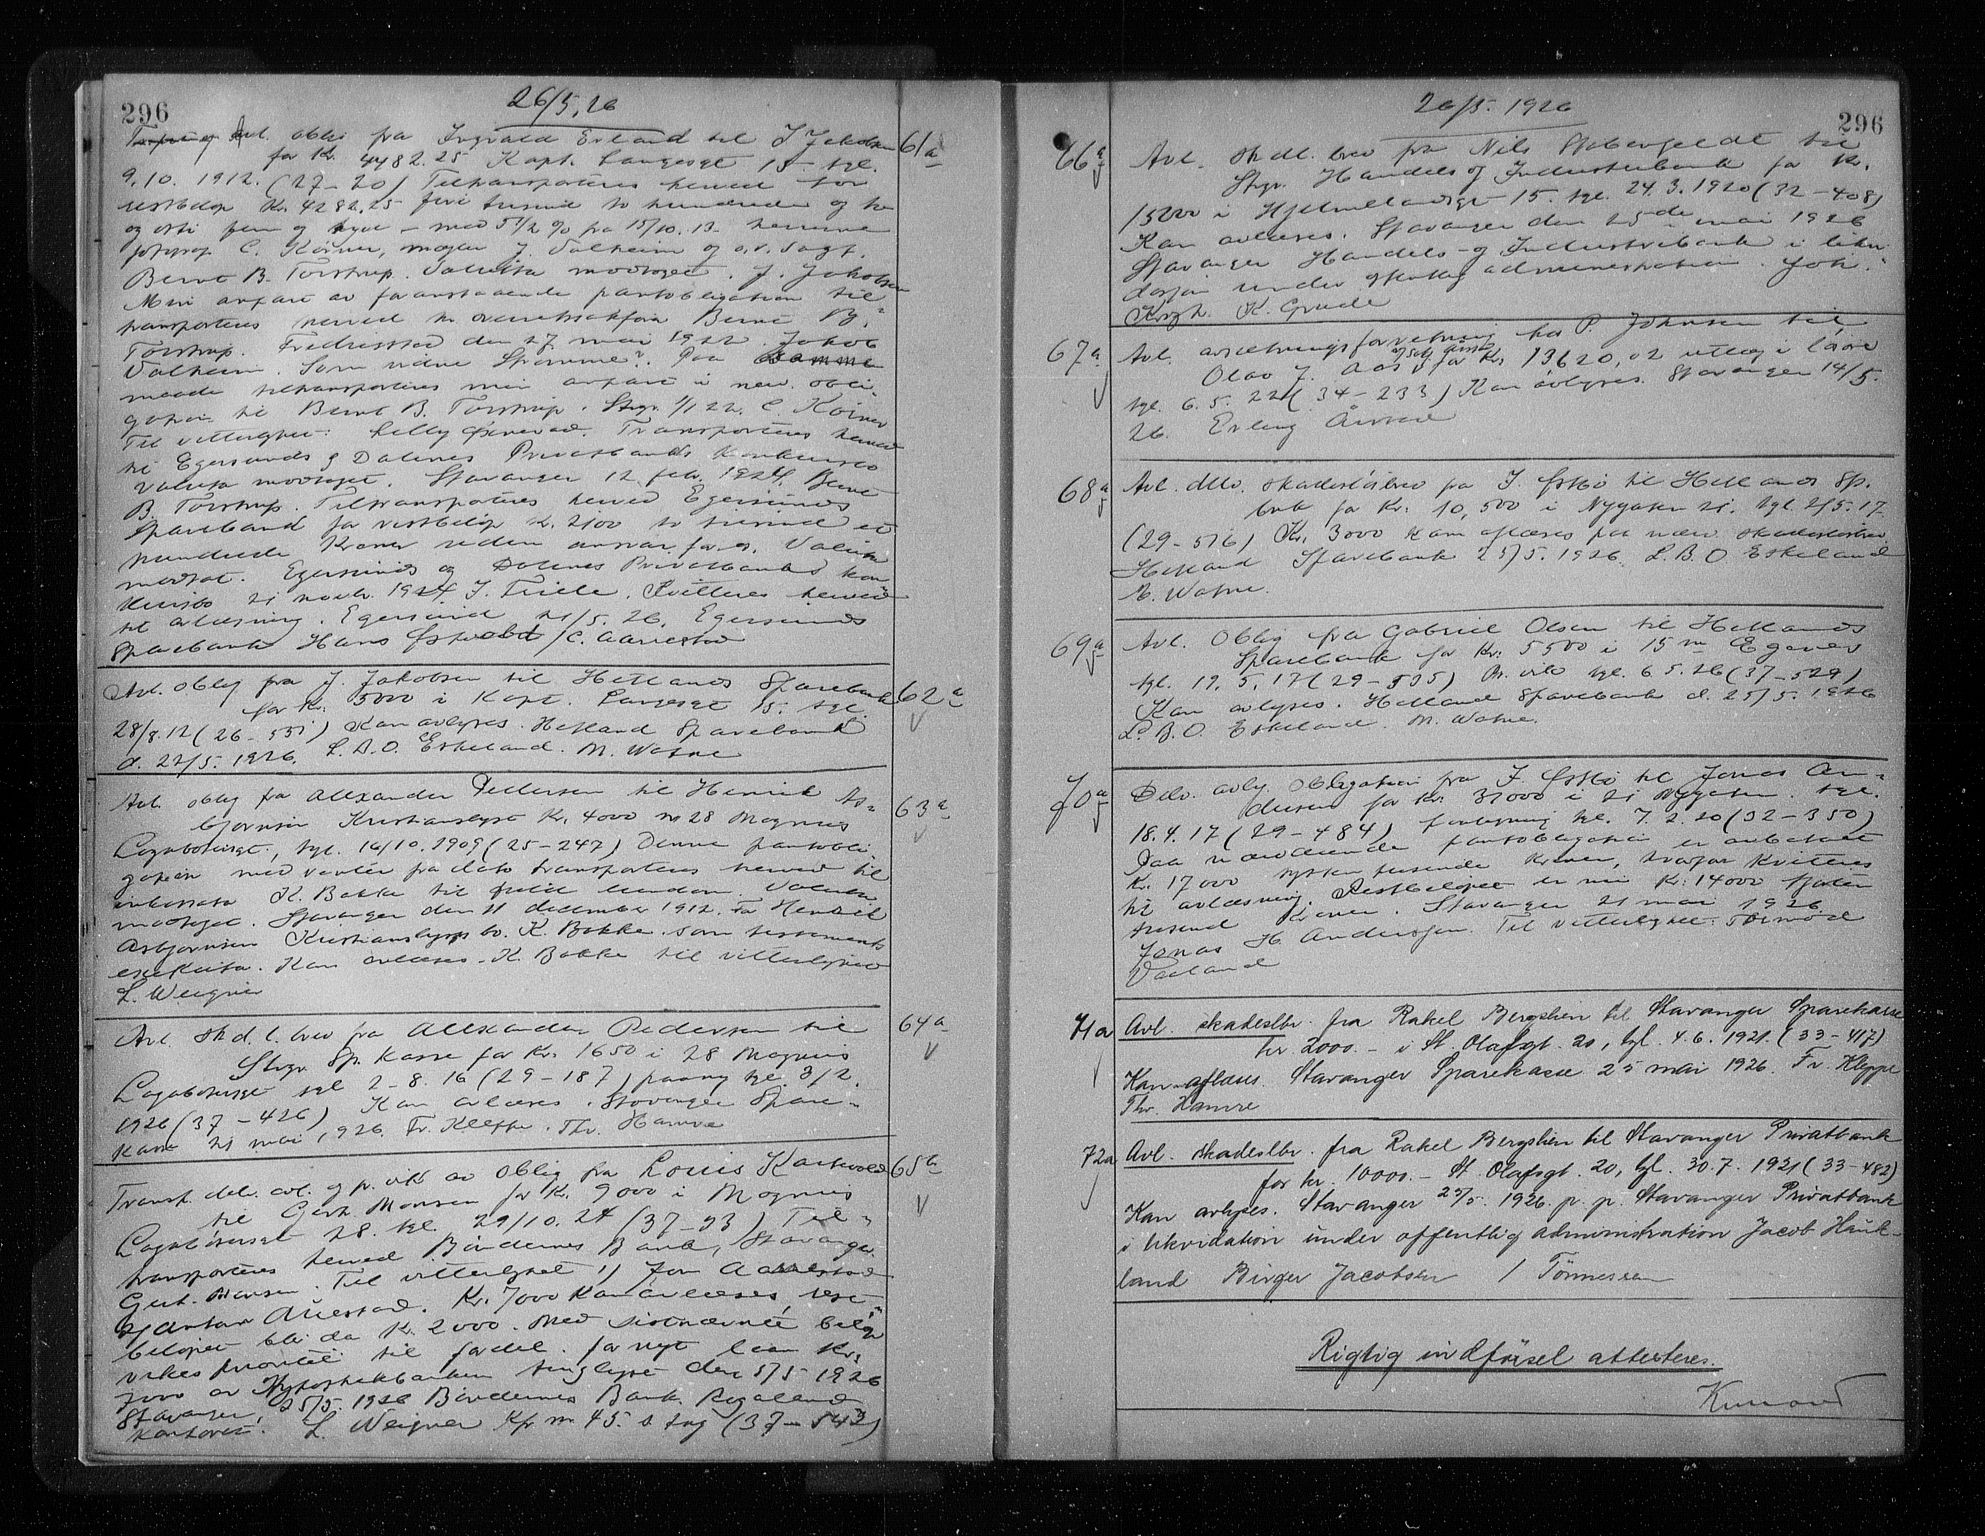 296
26/5, 26
avl. oblig fra Ingvald Erland til J Jakobsen
61a
for Kr. 4482.25 Kapt. Langesgt 15 tgl.
9.10. 1912. (27-20) Tiltransporteres herved for
restbeløp Kr. 4282,25 fire tusind to hundrede og
og otti fem og tyve - med 5 1/2 % fra 15/10. 13. herrerne
C. Körner, mægler J. Valheim og o.r. sagf.
Bernt B. Torstrup. Valuta modtaget. J. Jakobsen
Min anpart av foranstaaende pantobligation til
transporteres herved til overretssakfører Bernt B.
Torstrup. Fredrikstad den 27 mai 1922. Jakob
Valheim. Som vidne Paa samme
maade tiltransporteres min anpart i næv. obli
gation til Bernt B. Torstrup. Stvgr. 1/1 22. C. Körner
Til vitterlighet: Transporteres herved
til Egersunds & Dalenes Privatbanks konkursbo
Valuta modtaget. Stavanger 12 febr. 1924. Bernt
B. Torstrup. Tiltransporteres herved Egersunds
Sparebank for restbeløp kr. 2100 to tusind et
hundrede Kroner uden ansvar for os. Valuta
modtat. Egersunds og Dalenes Privatbanks kon-
kursbo 21 novbr. 1924 J. Feile. Kvitteres herved
til avlæsning. Egersund 21/5. 26. Egersunds
Sparebank Hans /C. Aarrestad
Avl. oblig fra J. Jakobsen til Hetlands Sparebank
62a
for Kr. 5000 i Kapt. Langesgt 15. tgl.
28/8.12 (26-551) Kan avlyses. Hetland Sparebank
d. 22/5. 1926. L.B.O. Eskeland. M. Watne
Avl. oblig fra Alexander Pedersen til Henrik As-
63a
bjørnsen Kristianslyst Kr. 4000 no 28 Magnus
Lagabøtersgt., tgl. 16/10. 1909 (25-247) Denne pantobli
gation med renter fra dato transporteres herved til
K. Bakke til fuld eiendom. Valuta
modtaget. Stavanger den 11 december 1912. For Henrik
Asbjørnsen Kristianslysts bo. K. Bakke. som testaments
exekutor. Kan avlæses. K. Bakke til vitterlighet
L. Weigner
Avl. skd.l. brev fra Alexander Pedersen til
64a
Stvgr. Sp. Kasse for Kr. 1650 i 28 Magnus
Lagabøtersgt tgl 2-8. 16 (29-187) paany tgl. 3/2.
1926 (37-426) Kan avlæses. Stavanger Spare-
kasse 21 mai 1926. Fr. Kleppe. Thr. Hamre
Transp. delv. avl. og pr. vik av oblig fra Louis Karlvold
65a
til Gert Monsen for Kr. 9000 i Magnus
Lagabøtersgt 28. tgl. 29/10. 24 (37-93) Til-
transporteres herved Bøndernes Bank, Stavanger
Gert. Monsen. Til vitterlighet 1) Jon Aarrestad
2) Anton Auestad. Kr. 7000 kan avlæses, rest
beløpet blir da Kr. 2000. Med sistnævnte beløp
vikes prioritet til fordel for nyt laan Kr.
7000 av Hypotekbanken tinglyst den 5/5 1926
Stavanger, 25/5. 1926 Bøndernes Bank Rogaland
kontoret. L. Weigner Kfr no 45. s. dag (37-543)
26/5. 1926
296
66a
Avl. skdl. brev fra Nils Stabergeldt til
Stvgr. Handels og Industribank for Kr.
15000 i Hjelmelandsgt 15. tgl. 24.3. 1920 (32-408)
Kan avlæses. Stavanger den 25de mai 1926
Stavanger Handels- og Industribank i likvi-
dasjon under offentlig administration Joh.
K. Grude
67a
Avl. avsætningsforretning hos P. Johnsen til
Olav J. Aas for Kr. 13620,02 utlæg i løsøre
tgl. 6. 5. 22 (34-233) Kan avlyses. Stavanger 14/5.
26. Erling Aarrestad
68a
Avl. delv. skadesløsbrev fra J. Espø til Hetlands Sp.
bnk for Kr. 10,500 i Nygaten 21. tgl. 2/5. 17
(29-516) Kr. 3000 kan aflæses paa nærv. skadesløsbrev
Hetland Sparebank 25/5. 1926. L.B.O Eskeland
M. Watne.
69a
Avl. Oblig fra Gabriel Olsen til Hetlands
Sparebank for Kr. 5500 i 15 m Eganes
tgl. 12. 5. 17 (29-535) Pr. vik tgl. 6. 5. 26 (37-529)
Kan avlyses. Hetland Sparebank d. 25/5. 1926
L. B. O Eskeland. M. Watne.
70a
Delv. avlg. Obligation fra J. Espø til Jonas An-
dersen for Kr. 31000 i 21 Nygaten. tgl.
18.4. 17 (29-484) forlængning tgl. 7. 2. 20 (32-350)
Paa nærværende pantobligation er avbetalt
Kr. 17000 sytten tusinde kroner, hvorfor kvitteres
til avlæsning. Restbeløpet er nu Kr: 14000 fjorten
tusend Kroner. Stavanger 21 mai 1926
Jonas H. Andersen. Til vitterlighet: Tormod
Varland
71a
Avl. skadeslbr. fra Rakel Bergslien til Stavanger Sparekasse
kr 2000. - i St. Olafsgt. 20, tgl. 4.6. 1921. (33-417)
Kan aflæses. Stavanger Sparekasse 25 mai 1926. Fr. Kleppe
Thr. Hamre
72a
Avl. skadeslbr. fra Rakel Bergslien til Stavanger Privatbank
for kr. 10000. - St. Olafsgt. 20, tgl. 30.7. 1921 (33-482)
Kan avlyses. Stavanger 25/5. 1926. p. p. Stavanger Privatbank
i likvidation under offentlig administration Jacob Hauk-
land Birger Jacobsen / Tönnessen
Rigtig indførsel attesteres.